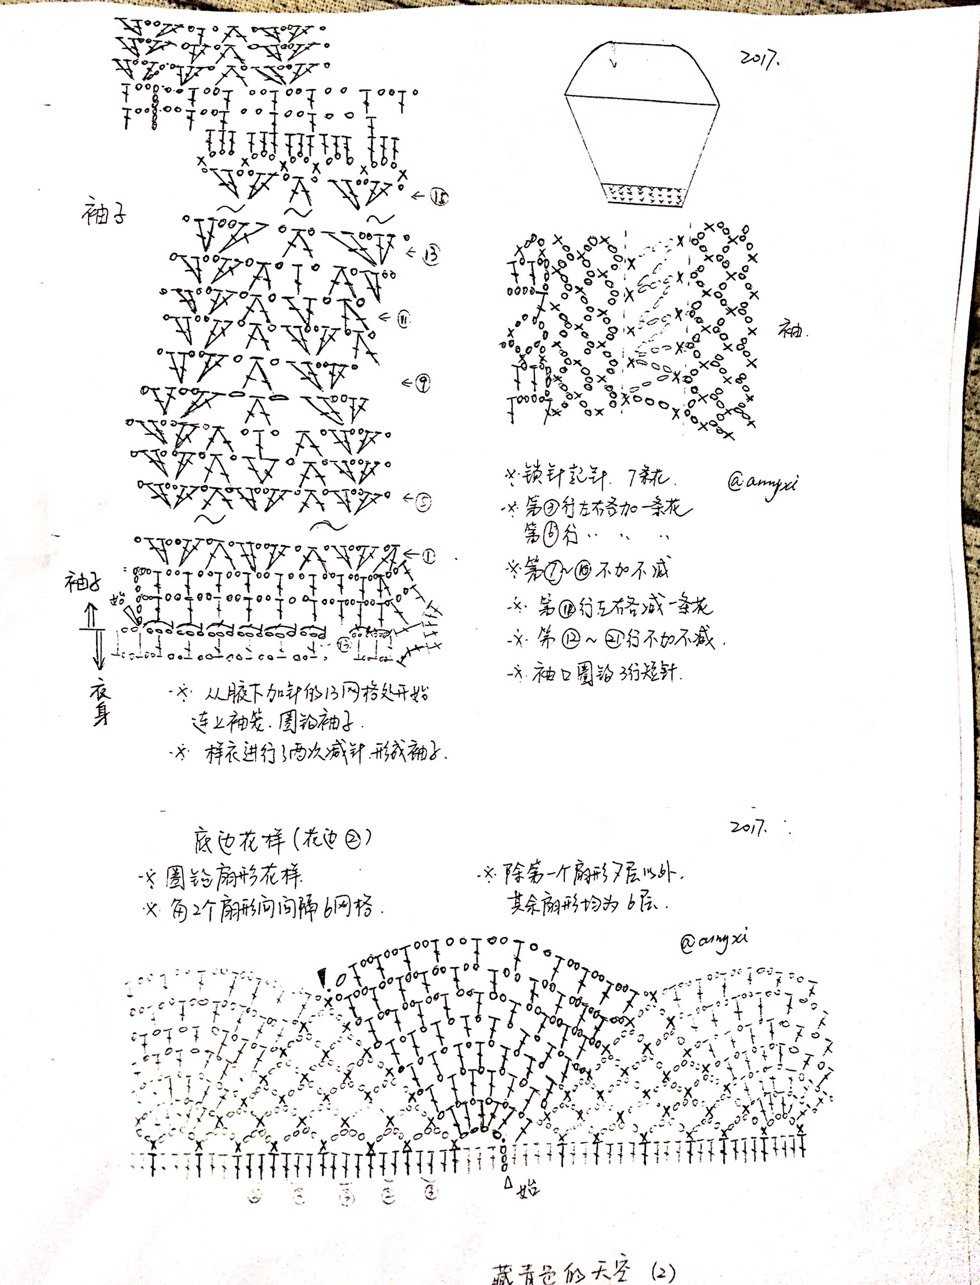 2017.
袖子
⑮
⑬
⑪
⑨
⑤
①
袖
@amyxi
※ 锁针起针. 7条花.
※ 第③行左右各加一条花
第⑥行 〃 〃 〃
※ 第⑦~⑩不加不减
※ 第⑪行左右各减一条花
※ 第⑫~㉑行不加不减.
※ 袖口圈钩3行短针.
袖子
始
⑬
衣身
※ 从腋下加针的13网格处开始
连上袖笼.圈钩袖子.
※ 样衣进行了两次减针.形成袖子.
2017.
底边花样(花边②)
※ 圈钩扇形花样
※ 每2个扇形间间隔6网格.
※ 除第一个扇形7层以外.
其余扇形均为6层.
@amyxi
始
藏青色的天空(2)